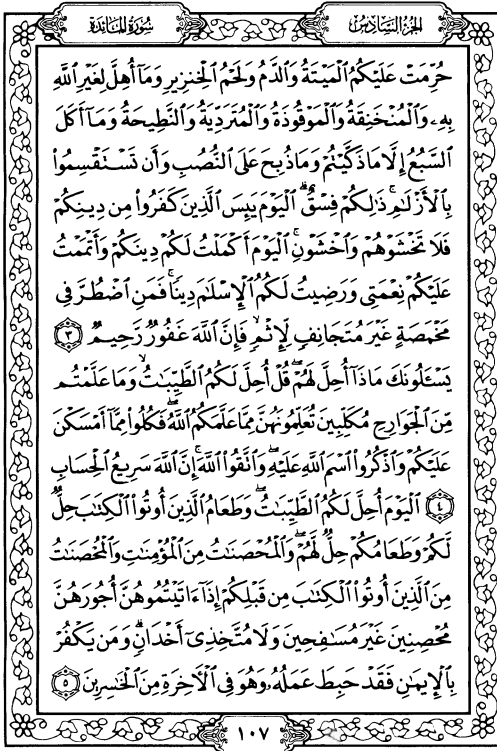 الجزء السادس
سورة المائدة
حُرِّمَتْ عَلَيْكُمُ ٱلْمَيْتَةُ وَٱلدَّمُ وَلَحْمُ ٱلْخِنزِيرِ وَمَآ أُهِلَّ لِغَيْرِ ٱللَّهِ
بِهِۦ وَٱلْمُنْخَنِقَةُ وَٱلْمَوْقُوذَةُ وَٱلْمُتَرَدِّيَةُ وَٱلنَّطِيحَةُ وَمَآ أَكَلَ
ٱلسَّبُعُ إِلَّا مَا ذَكَّيْتُمْ وَمَا ذُبِحَ عَلَى ٱلنُّصُبِ وَأَن تَسْتَقْسِمُوا۟
بِٱلْأَزْلَٰمِ ۚ ذَٰلِكُمْ فِسْقٌ ۗ ٱلْيَوْمَ يَئِسَ ٱلَّذِينَ كَفَرُوا۟ مِن دِينِكُمْ
فَلَا تَخْشَوْهُمْ وَٱخْشَوْنِ ۚ ٱلْيَوْمَ أَكْمَلْتُ لَكُمْ دِينَكُمْ وَأَتْمَمْتُ
عَلَيْكُمْ نِعْمَتِى وَرَضِيتُ لَكُمُ ٱلْإِسْلَٰمَ دِينًا ۚ فَمَنِ ٱضْطُرَّ فِى
مَخْمَصَةٍ غَيْرَ مُتَجَانِفٍ لِّإِثْمٍ ۙ فَإِنَّ ٱللَّهَ غَفُورٌ رَّحِيمٌ ٣
يَسْـَٔلُونَكَ مَاذَآ أُحِلَّ لَهُمْ ۖ قُلْ أُحِلَّ لَكُمُ ٱلطَّيِّبَٰتُ ۙ وَمَا عَلَّمْتُم
مِّنَ ٱلْجَوَارِحِ مُكَلِّبِينَ تُعَلِّمُونَهُنَّ مِمَّا عَلَّمَكُمُ ٱللَّهُ ۖ فَكُلُوا۟ مِمَّآ أَمْسَكْنَ
عَلَيْكُمْ وَٱذْكُرُوا۟ ٱسْمَ ٱللَّهِ عَلَيْهِ ۖ وَٱتَّقُوا۟ ٱللَّهَ ۚ إِنَّ ٱللَّهَ سَرِيعُ ٱلْحِسَابِ
٤ ٱلْيَوْمَ أُحِلَّ لَكُمُ ٱلطَّيِّبَٰتُ ۖ وَطَعَامُ ٱلَّذِينَ أُوتُوا۟ ٱلْكِتَٰبَ حِلٌّ
لَّكُمْ وَطَعَامُكُمْ حِلٌّ لَّهُمْ ۖ وَٱلْمُحْصَنَٰتُ مِنَ ٱلْمُؤْمِنَٰتِ وَٱلْمُحْصَنَٰتُ
مِنَ ٱلَّذِينَ أُوتُوا۟ ٱلْكِتَٰبَ مِن قَبْلِكُمْ إِذَآ ءَاتَيْتُمُوهُنَّ أُجُورَهُنَّ
مُحْصِنِينَ غَيْرَ مُسَٰفِحِينَ وَلَا مُتَّخِذِىٓ أَخْدَانٍ ۗ وَمَن يَكْفُرْ
بِٱلْإِيمَٰنِ فَقَدْ حَبِطَ عَمَلُهُۥ وَهُوَ فِى ٱلْءَاخِرَةِ مِنَ ٱلْخَٰسِرِينَ ٥
١٠٧